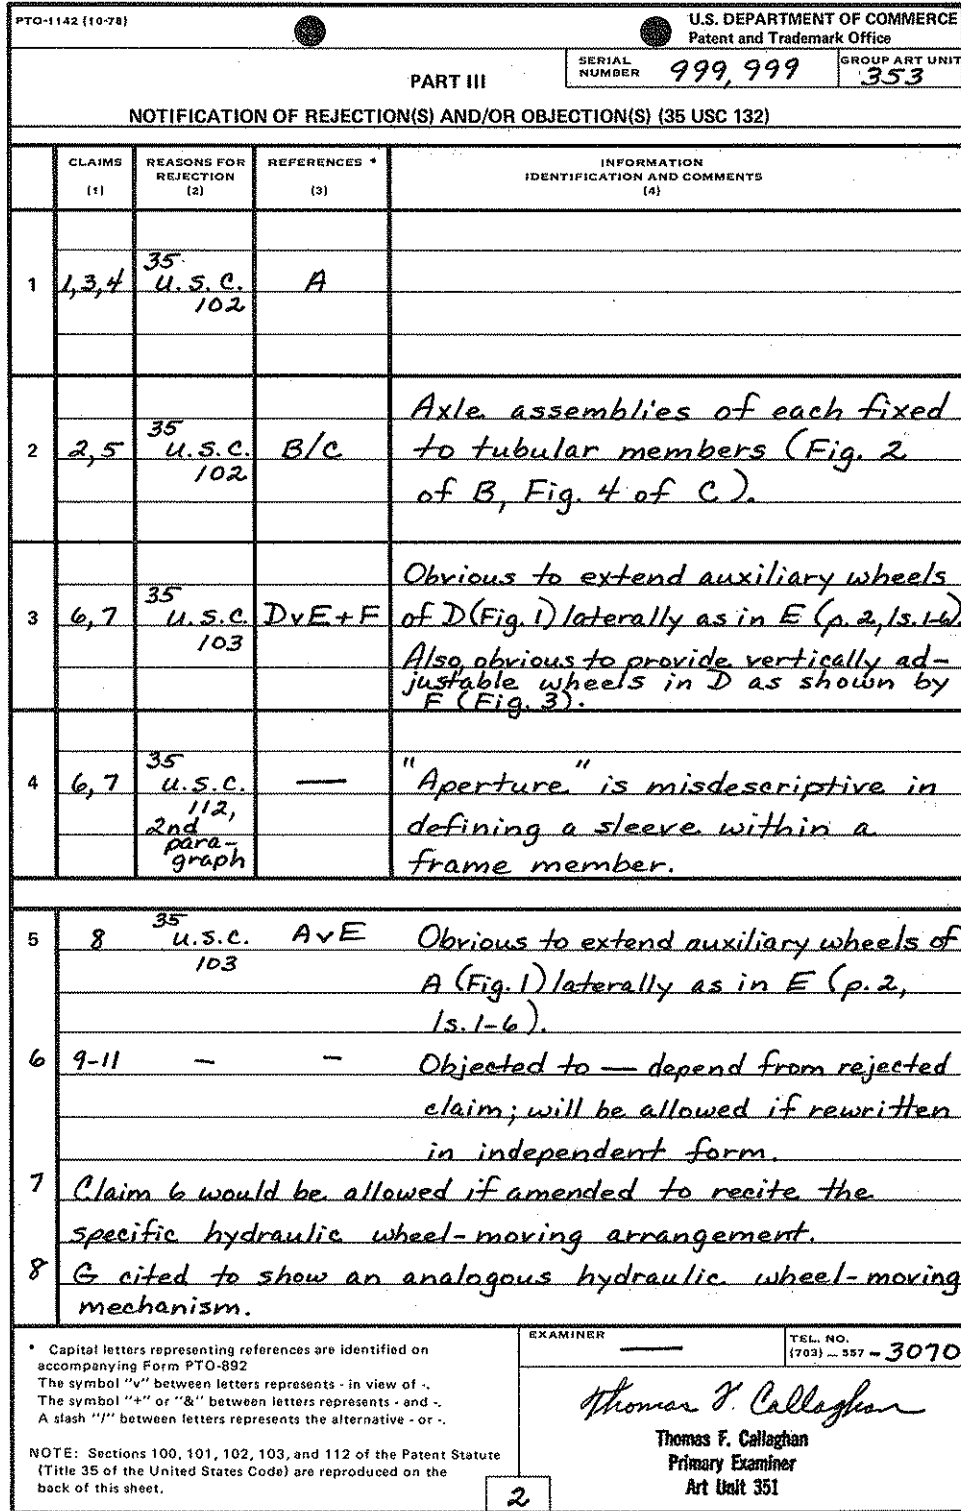 PTO-1142 (10-78)
U.S. DEPARTMENT OF COMMERCE
Patent and Trademark Office
PART III
SERIAL NUMBER 999,999
GROUP ART UNIT 353
NOTIFICATION OF REJECTION(S) AND/OR OBJECTION(S) (35 USC 132)
CLAIMS (1)
REASONS FOR REJECTION (2)
REFERENCES * (3)
INFORMATION IDENTIFICATION AND COMMENTS (4)
1 1,3,4 35 U.S.C. 102 A
2 2,5 35 U.S.C. 102 B/C
Axle assemblies of each fixed
to tubular members (Fig. 2
of B, Fig. 4 of C).
3 6,7 35 U.S.C. 103 DvE+F
Obvious to extend auxiliary wheels
of D (Fig. 1) laterally as in E (p. 2, ls. 1-6).
Also, obvious to provide vertically ad-
justable wheels in D as shown by
F (Fig. 3).
4 6,7 35 U.S.C. 112, 2nd para-graph —
"Aperture" is misdescriptive in
defining a sleeve within a
frame member.
5 8 35 U.S.C. 103 AvE
Obvious to extend auxiliary wheels of
A (Fig. 1) laterally as in E (p. 2,
ls. 1-6).
6 9-11 – –
Objected to — depend from rejected
claim; will be allowed if rewritten
in independent form.
7 Claim 6 would be allowed if amended to recite the
specific hydraulic wheel-moving arrangement.
8 G cited to show an analogous hydraulic wheel-moving
mechanism.
* Capital letters representing references are identified on
accompanying Form PTO-892
The symbol "v" between letters represents - in view of -.
The symbol "+" or "&" between letters represents - and -.
A slash "/" between letters represents the alternative - or -.
NOTE: Sections 100, 101, 102, 103, and 112 of the Patent Statute
(Title 35 of the United States Code) are reproduced on the
back of this sheet.
2
EXAMINER —
TEL. NO. (703) — 557 - 3070
Thomas F. Callaghan
Thomas F. Callaghan
Primary Examiner
Art Unit 351